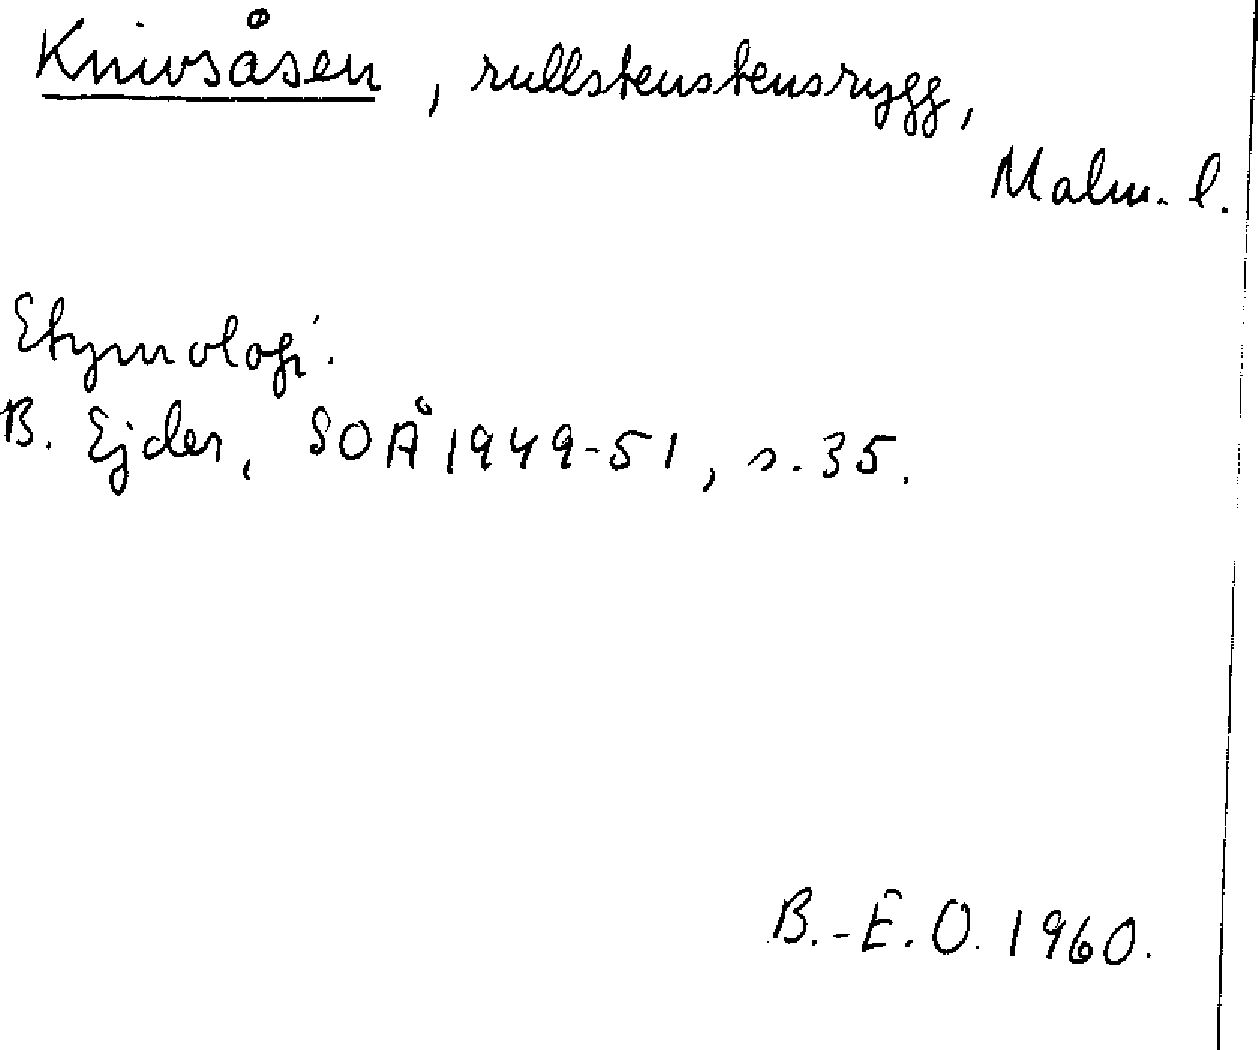 Knivsåsen, rullstenstensrygg,
Malm. l.
Etymologi.
B. Ejder, SOÅ 1949-51, s. 35.
B.-E. O. 1960.